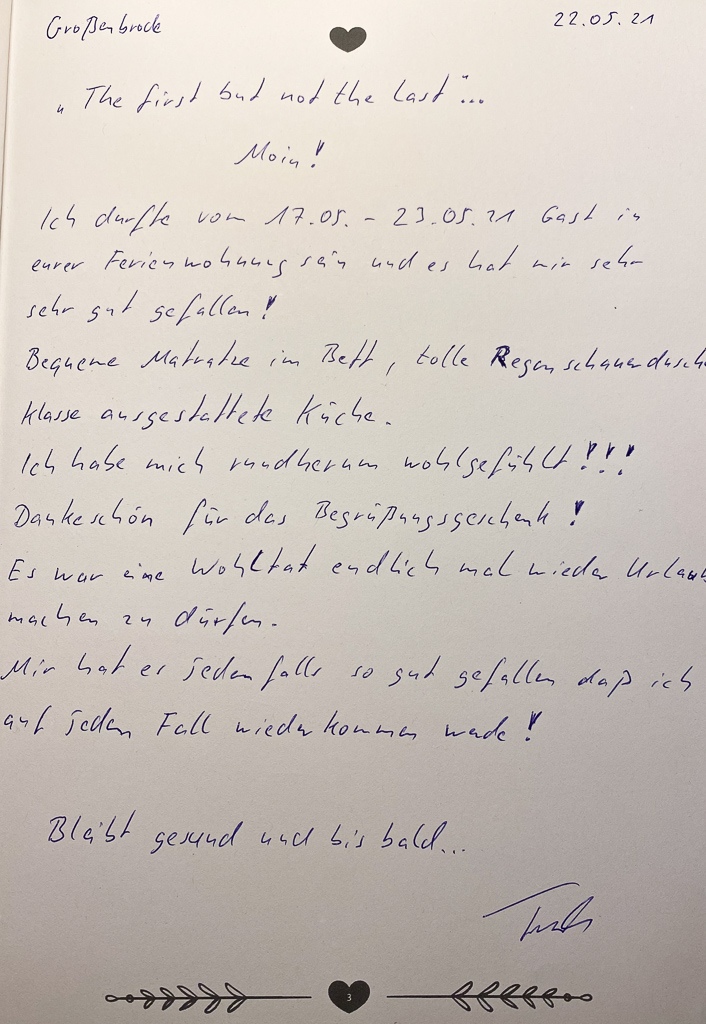 Großenbrode 22.05.21
„The first but not the last"...
Moin!
Ich durfte vom 17.05. - 23.05.21 Gast in
eurer Ferienwohnung sein und es hat mir sehr
sehr gut gefallen!
Bequeme Matratze im Bett, tolle Regenschauerdusche
Klasse ausgestattete Küche.
Ich habe mich rundherum wohlgefühlt!!!
Dankeschön für das Begrüßungsgeschenk!
Es war eine Wohltat endlich mal wieder Urlaub
machen zu dürfen.
Mir hat es jedenfalls so gut gefallen daß ich
auf jeden Fall wiederkommen werde!
Bleibt gesund und bis bald...
3